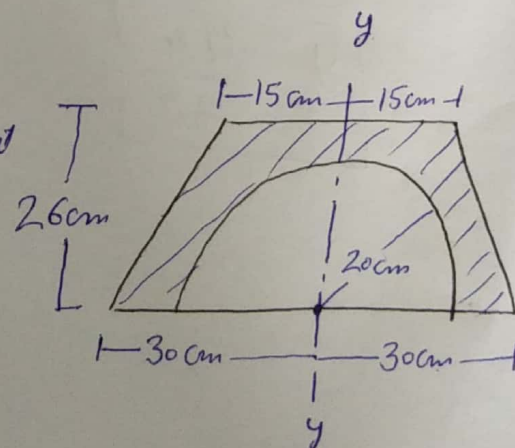 y
15cm 15cm
26cm
20cm
30cm 30cm
y